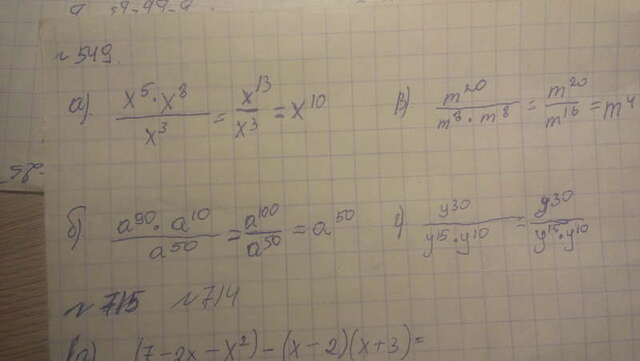 №549.
а) x⁵·x⁸/x³ = x¹³/x³ = x¹⁰
в) m²⁰/m⁸·m⁸ = m²⁰/m¹⁶ = m⁴
б) a⁹⁰·a¹⁰/a⁵⁰ = a¹⁰⁰/a⁵⁰ = a⁵⁰
г) y³⁰/y¹⁵·y¹⁰ = y³⁰/y¹⁵·y¹⁰
№715 №714
а) (7-2x-x²)-(x-2)(x+3)=